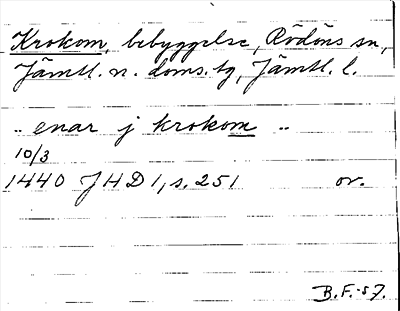 Krokom, bebyggelse, Rödöns sn,
Jämtl. n. doms. tg, Jämtl. l.
.. enar j krokom ..
10/3
1440 JHD 1, s. 251 or.
B.F.-57.